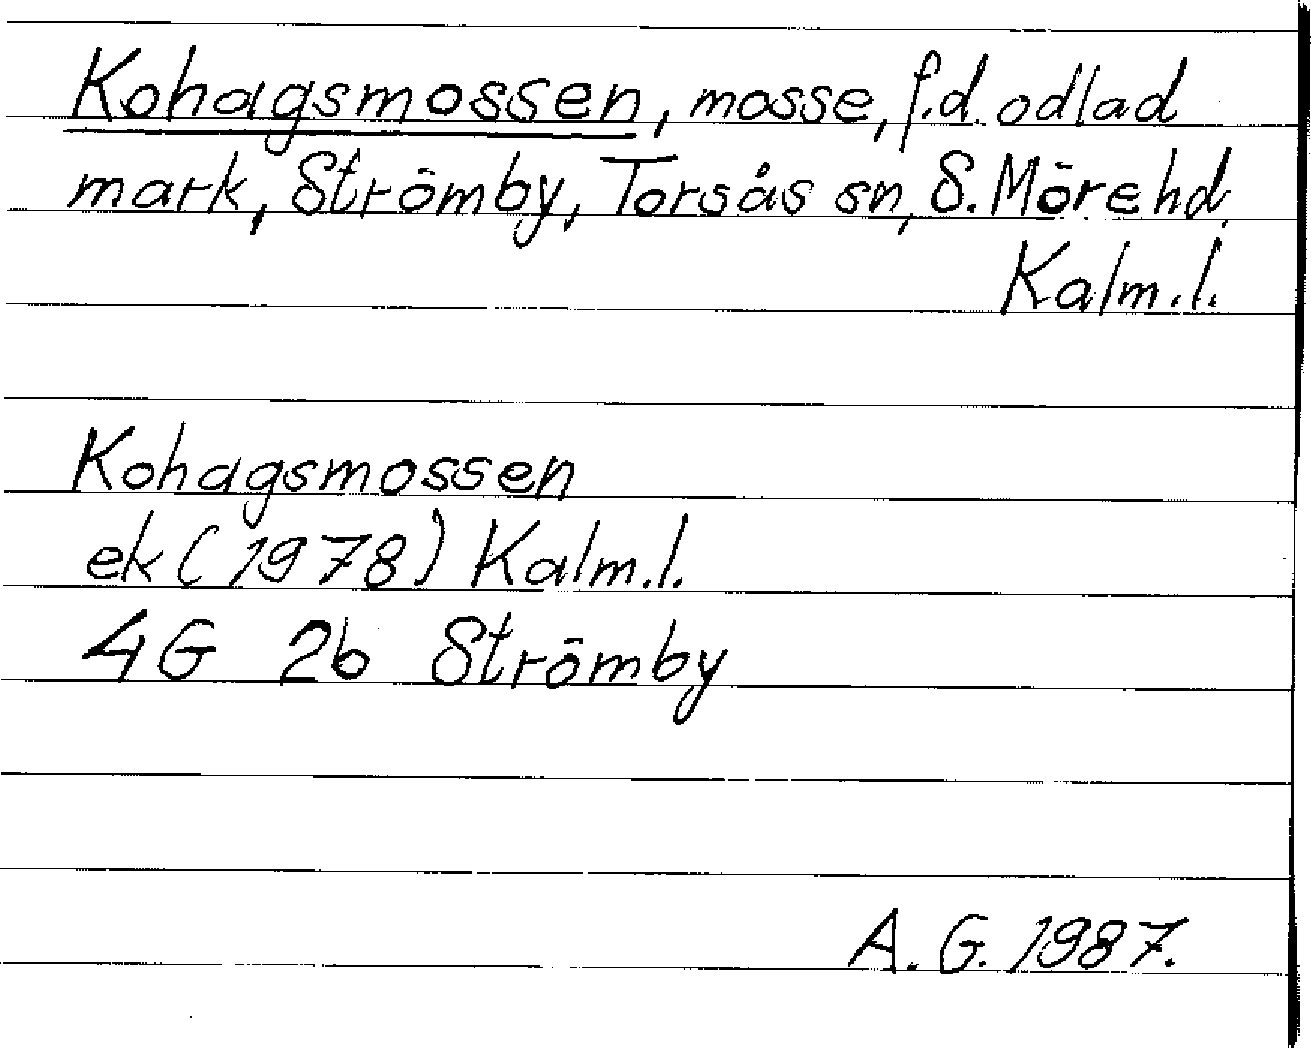 Kohagsmossen, mosse, f.d. odlad
mark, Strömby, Torsås sn, S. Möre hd,
Kalm.l.
Kohagsmossen
ek (1978) Kalm.l.
4G 2b Strömby
A.G. 1987.